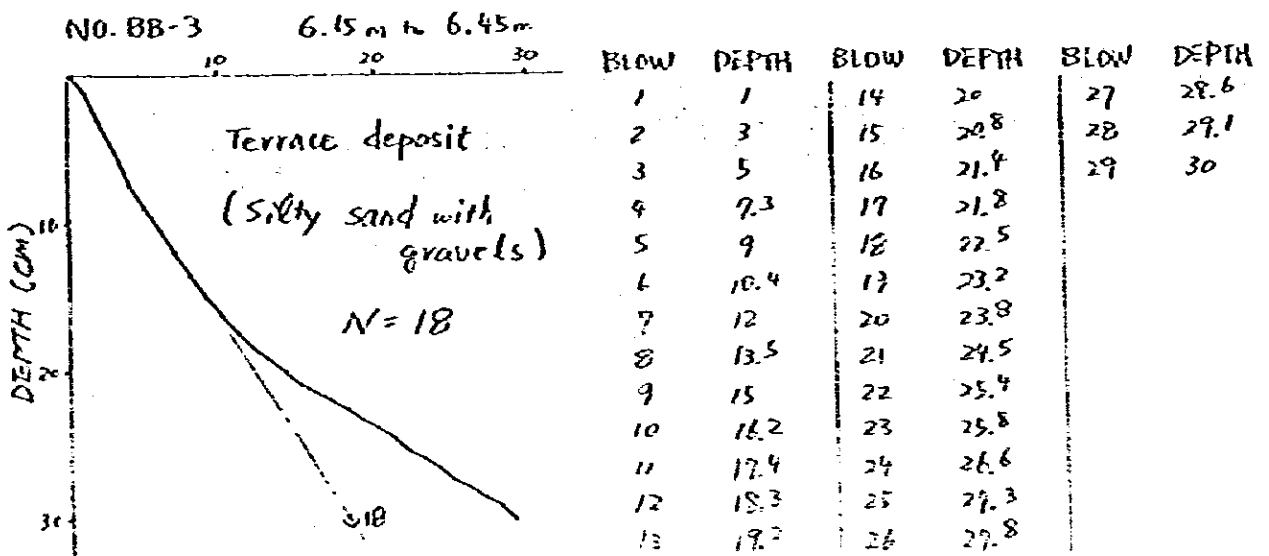 NO. BB-3 6.15 m to 6.45 m
10 20 30
DEPTH (CM)
10
20
30
Terrace deposit
(Silty sand with
gravels)
N = 18
18
BLOW DEPTH BLOW DEPTH BLOW DEPTH
1 1 14 20 27 28.6
2 3 15 20.8 28 29.1
3 5 16 21.4 29 30
4 7.3 17 21.8
5 9 18 22.5
6 10.4 19 23.2
7 12 20 23.8
8 13.5 21 24.5
9 15 22 25.4
10 16.2 23 25.8
11 17.4 24 26.6
12 18.3 25 27.3
13 19.2 26 27.8